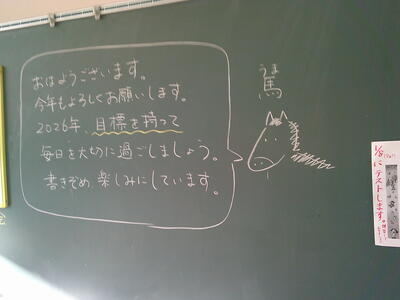 おはようございます。
今年もよろしくお願いします。
2026年、目標を持って
毎日を大切に過ごしましょう。
書きぞめ、楽しみにしています。
うま
馬
1/8に
テストします。